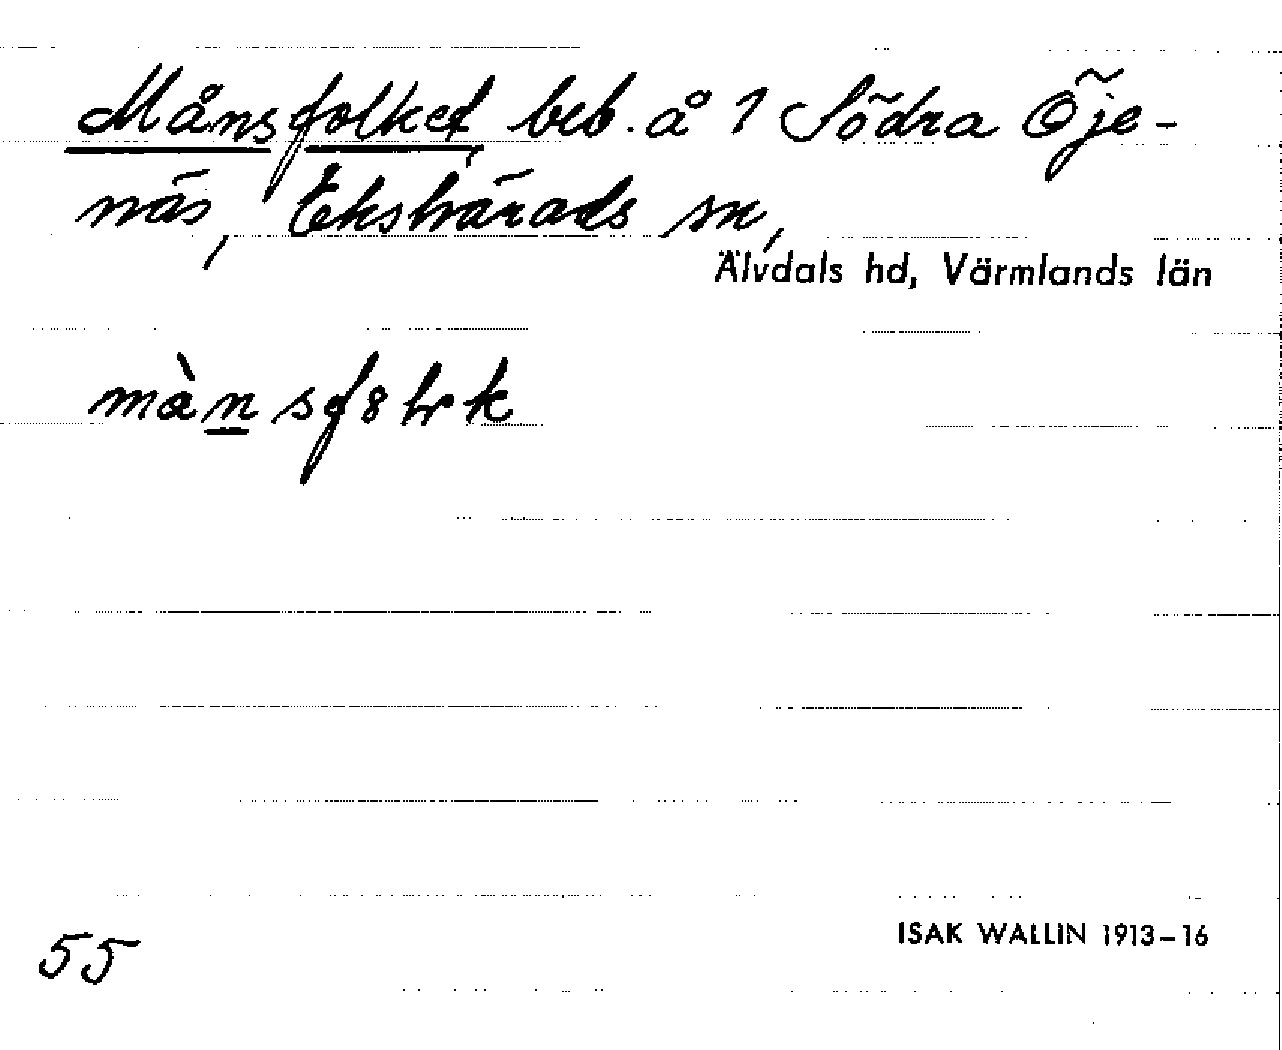 Månsfolket, beb. å 1 Södra Öje-
näs, Ekshärads sn,
Älvdals hd, Värmlands län
mànsf8lrk
55
ISAK WALLIN 1913–16